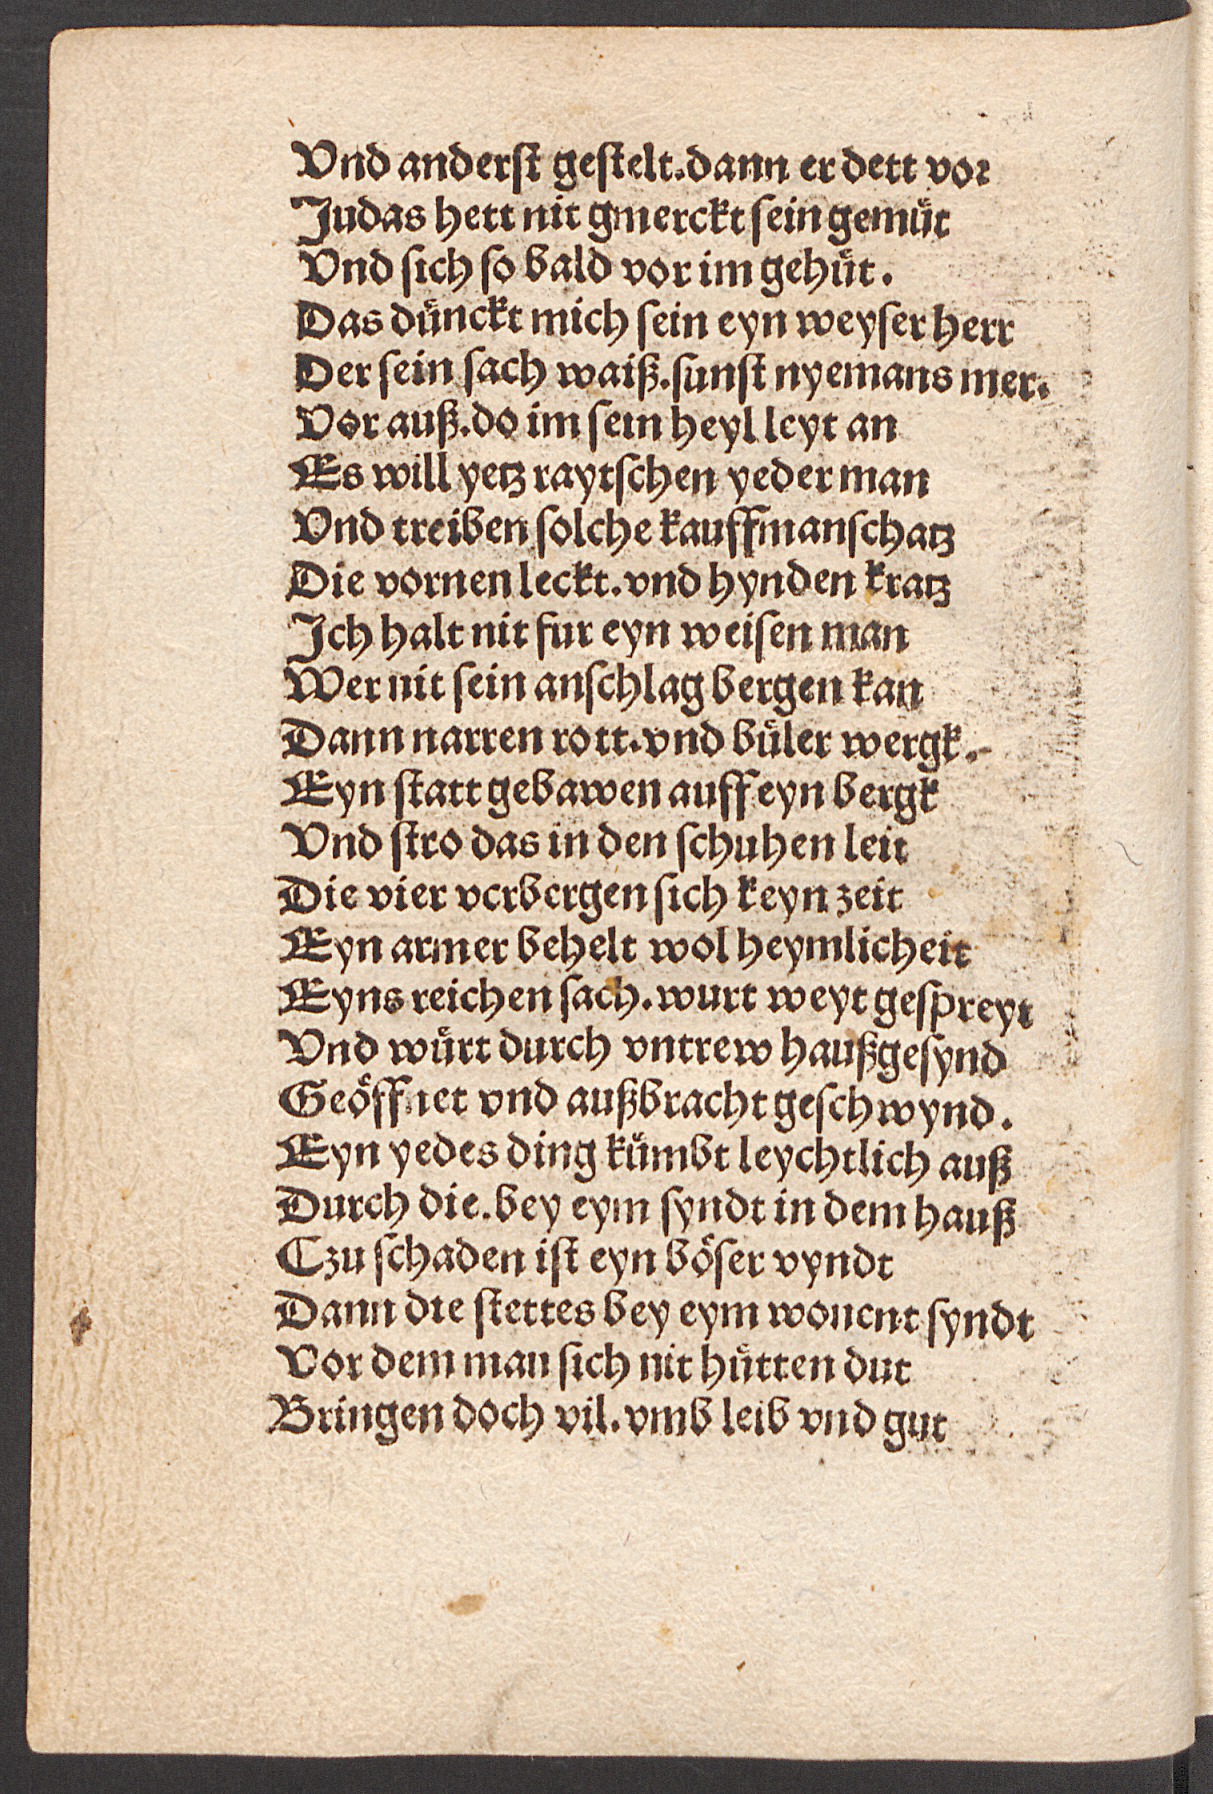 Vnd anderst gestelt.dann er dett vor
Judas hett nit gmerckt sein gemuͤt
Vnd sich so bald vor im gehuͤt.
Das duͤnckt mich sein eyn weyser herr
Der sein sach waiß.sunst nyemans mer.
Vor auß.do im sein heyl leyt an
Es will yetz raytschen yeder man
Vnd treiben solche kauffmanschatz
Die vornen leckt.vnd hynden kratz
Ich halt nit fur eyn weisen man
Wer nit sein anschlag bergen kan
Dann narren rott.vnd buͤler wergk.
Eyn statt gebawen auff eyn bergk
Vnd stro das in den schuhen leit
Die vier verbergen sich keyn zeit
Eyn armer behelt wol heymlicheit
Eyns reichen sach.wurt weyt gespreyt
Vnd wuͤrt durch vntrew haußgesynd
Geoͤffnet vnd außbracht geschwynd.
Eyn yedes ding kuͤmbt leychtlich auß
Durch die.bey eym syndt in dem hauß
Czu schaden ist eyn boͤser vyndt
Dann die stettes bey eym wonent syndt
Vor dem man sich nit huͤtten dut
Bringen doch vil.vmb leib vnd gut